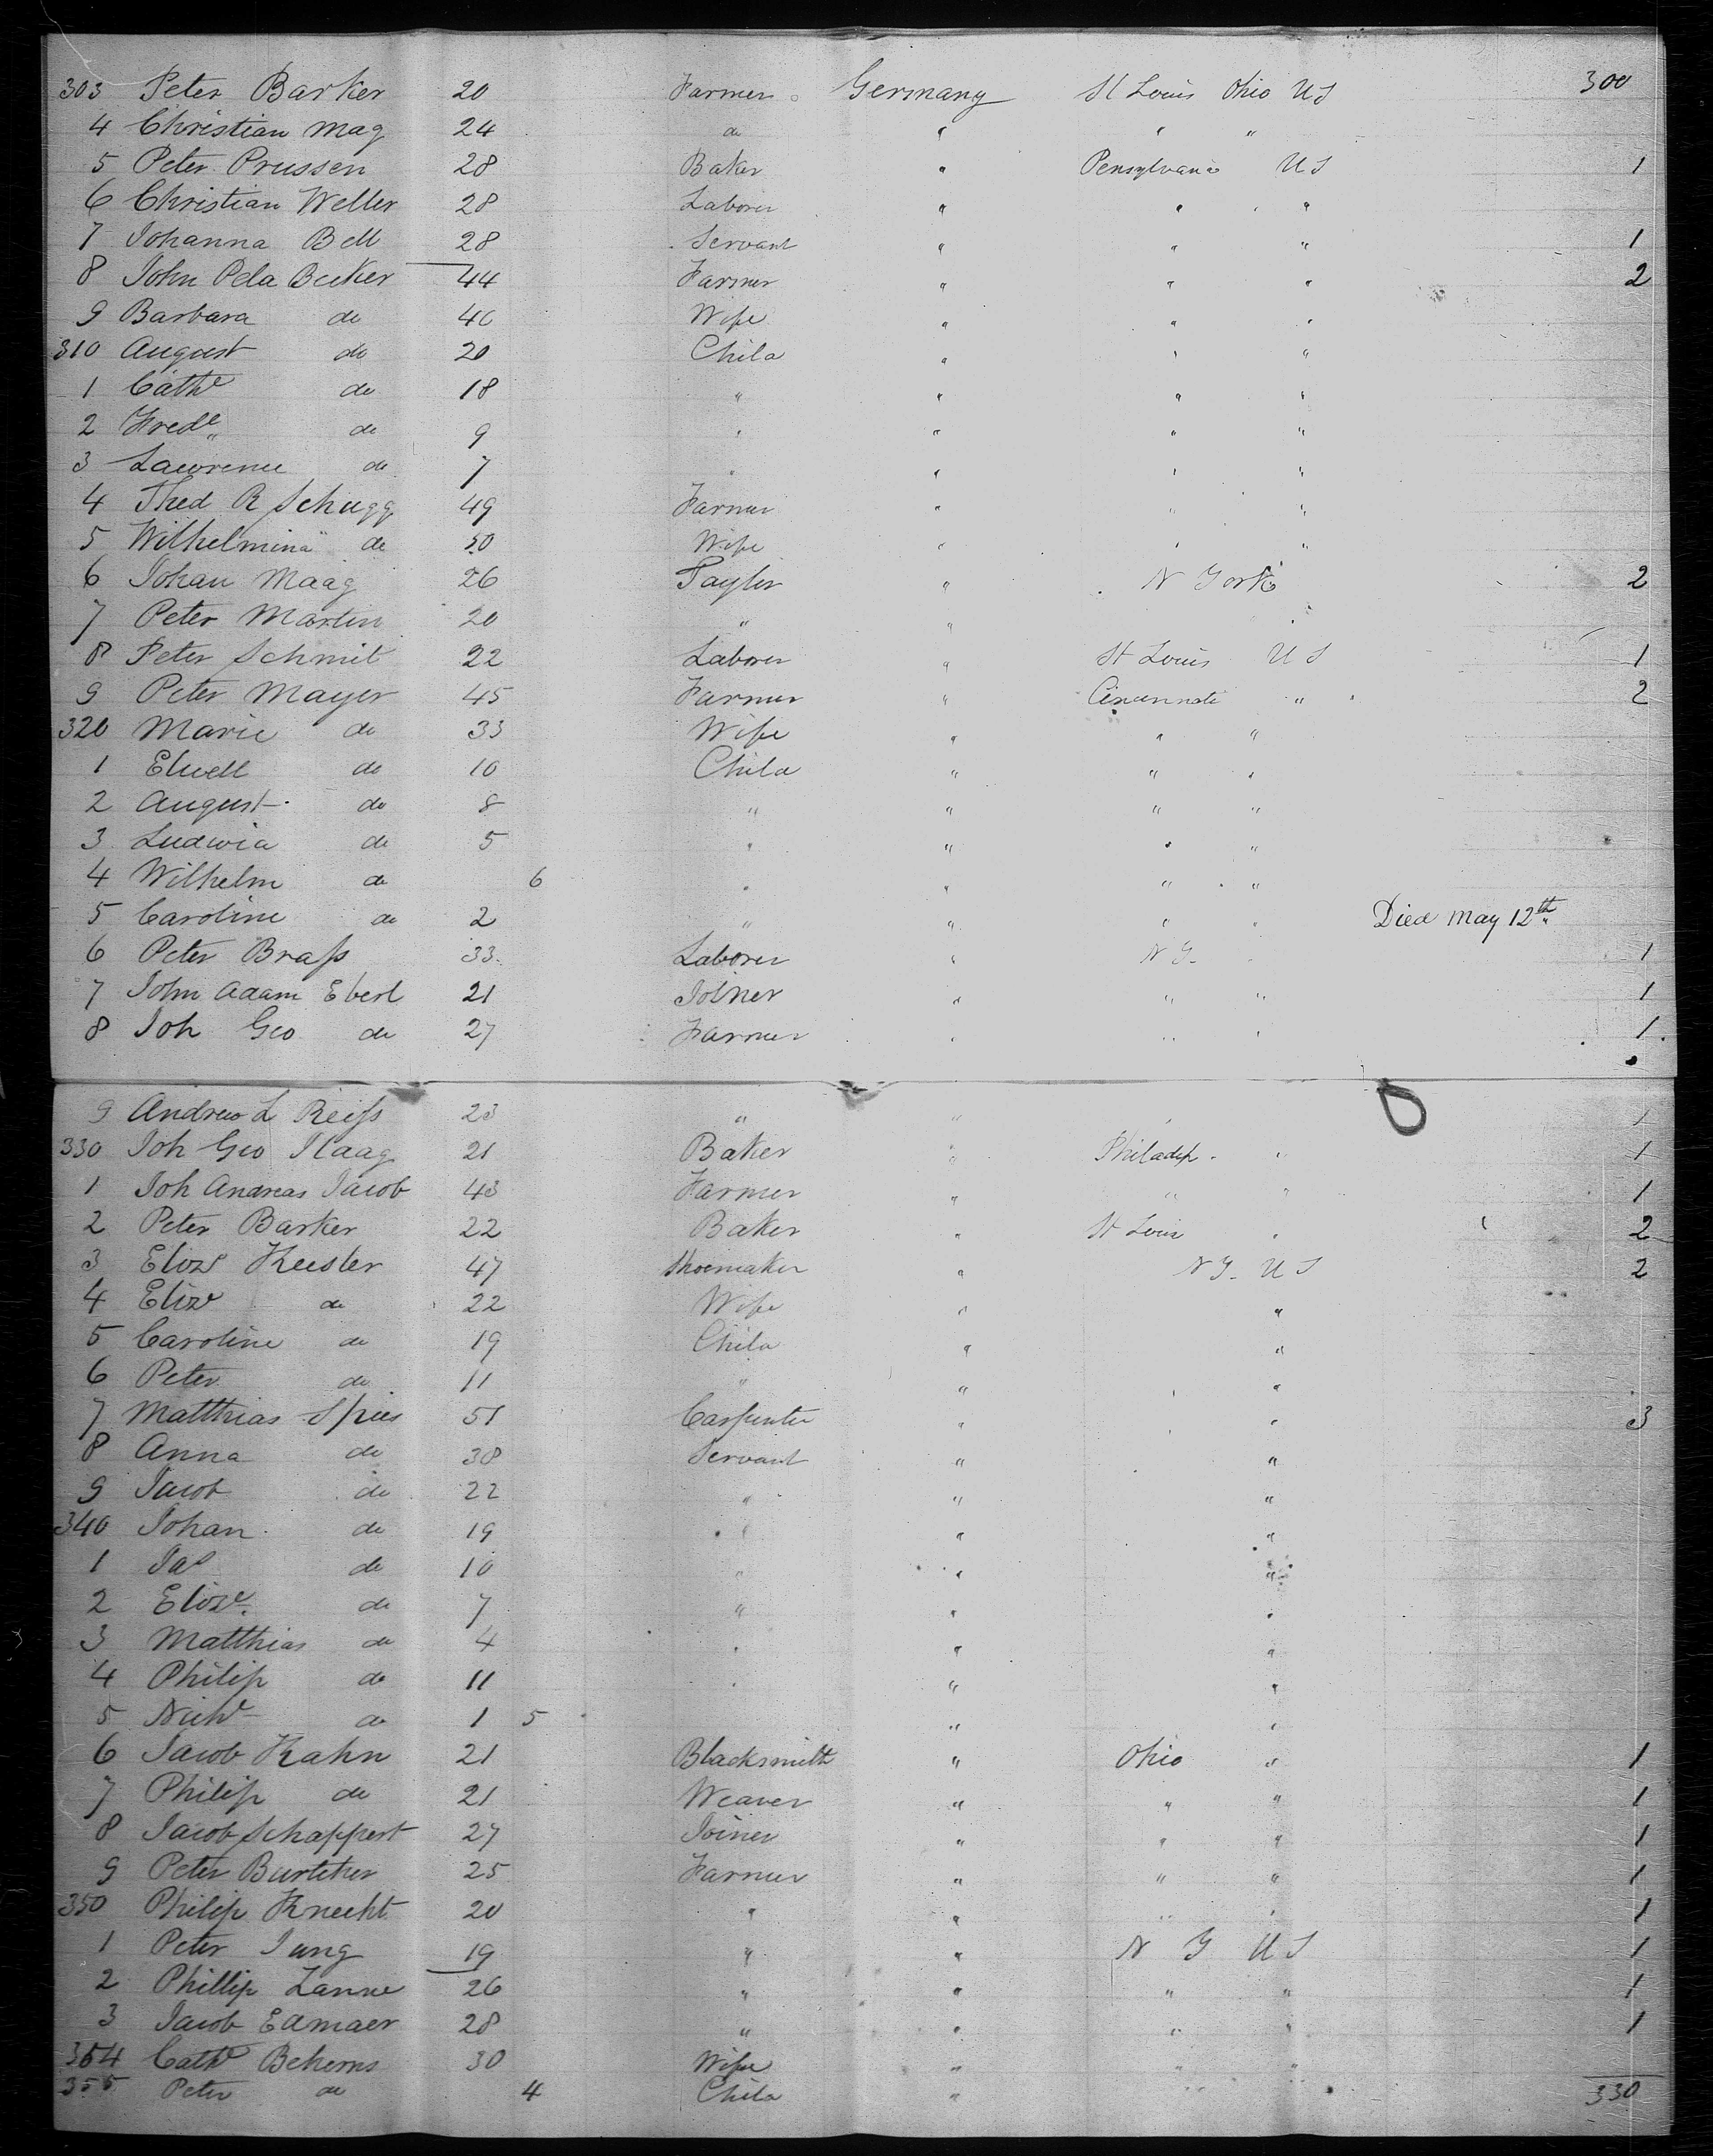 303 Peter Barker 20 Farmer Germany St Louis Ohio US 300
4 Christian Mag 24 do " " "
5 Peter Prussen 28 Baker " Pensylvania US 1
6 Christian Weller 28 Laborer " " "
7 Johanna Bell 28 Servant " " " 1
8 John Pela Becker 44 Farmer " " " 2
9 Barbara do 46 Wife " " "
310 August do 20 Child " " "
1 Cathe do 18 " " " "
2 Frede do 9 " " " "
3 Lawrence do 7 " " " "
4 Thed R Schugg 49 Farmer " " "
5 Wilhelmina do 50 Wife " " "
6 Johan Maag 26 Taylor " N York 2
7 Peter Martin 20 " " "
8 Peter Schmit 22 Laborer " St Louis US 1
9 Peter Mayer 45 Farmer " Cincinnati " 2
320 Marie do 33 Wife " " "
1 Elwell do 10 Child " " "
2 August do 8 " " " "
3 Ludwia do 5 " " " "
4 Wilhelm do 6 " " " "
5 Caroline do 2 " " " " Died May 12th
6 Peter Brass 33 Laborer " N Y " 1
7 John Adam Eberl 21 Joiner " " " 1
8 Joh Geo do 27 Farmer " " " 1
9 Andrew L Reiss 23 " " 1
330 Joh Geo Haag 21 Baker " Philadep " 1
1 Joh Andreas Jacob 43 Farmer " " " 1
2 Peter Barker 22 Baker " St Louis " 2
3 Eliza Keester 47 Shoemaker " N Y US 2
4 Elize do 22 Wife " "
5 Caroline do 19 Child " "
6 Peter do 11 " " "
7 Matthias Spies 51 Carpenter " " 3
8 Anna do 38 Servant " "
9 Jacob do 22 " " "
340 Johan do 19 " " "
1 Jas do 10 " " "
2 Elize do 7 " " "
3 Matthias do 4 " " "
4 Philip do 11 " " "
5 Niche do 1 5 " "
6 Jacob Kahn 21 Blacksmith " Ohio " 1
7 Philip do 21 Weaver " " " 1
8 Jacob Schappert 27 Joiner " " " 1
9 Peter Burtcher 25 Farmer " " " 1
350 Philip Knecht 20 " " " " 1
1 Peter Jung 19 " " N Y US 1
2 Phillip Zanne 26 " " " " 1
3 Jacob Edmaer 28 " " " " 1
354 Cathe Behems 30 Wife " " "
355 Peter do 4 Child " " 330